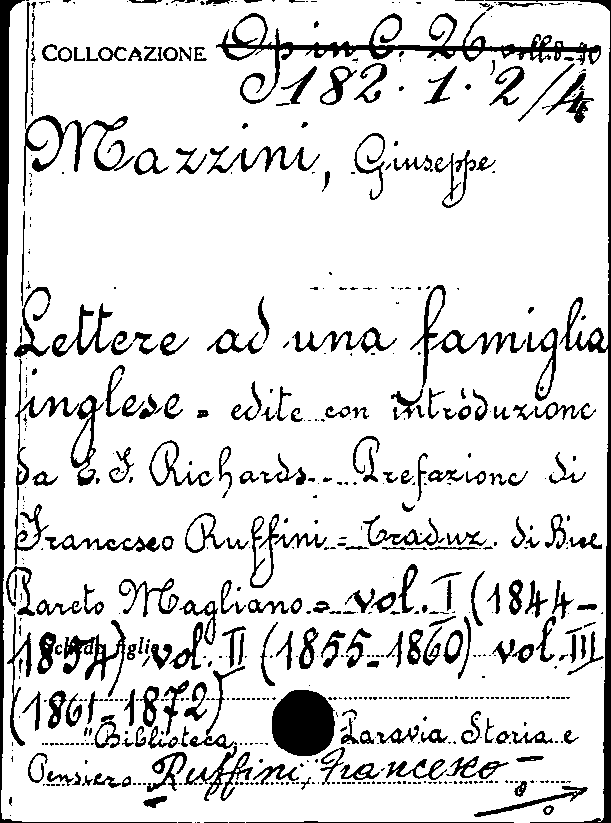 COLLOCAZIONE Op in C. 26, voll. 8-10
S 182. 1. 2/4
Mazzini, Giuseppe
Lettere ad una famiglia
inglese = edite con introduzione
da E. F. Richards... Prefazione di
Francesco Ruffini = Traduz. di Bice
Pareto Magliano = vol. I (1844-
1854) vol. II (1855-1860) vol. III
(1861-1872)
"Biblioteca Paravia Storia e
Pensiero Ruffini, Francesco